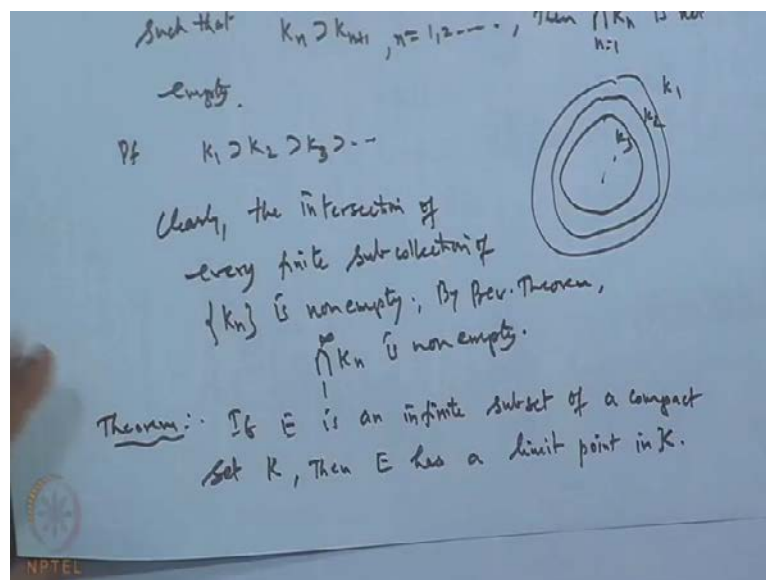 such that Kn ⊃ Kn+1 , n=1,2-----, Then ⋂Kn is not
n=1
empty.
K1
K2
K3
Pf K1 ⊃ K2 ⊃ K3 ⊃ --
Clearly, the intersection of
every finite subcollection of
{Kn} is nonempty; By Prev. Theorem,
∞
⋂ Kn is nonempty.
1
Theorem:- If E is an infinite subset of a compact
set K, Then E has a limit point in K.
NPTEL